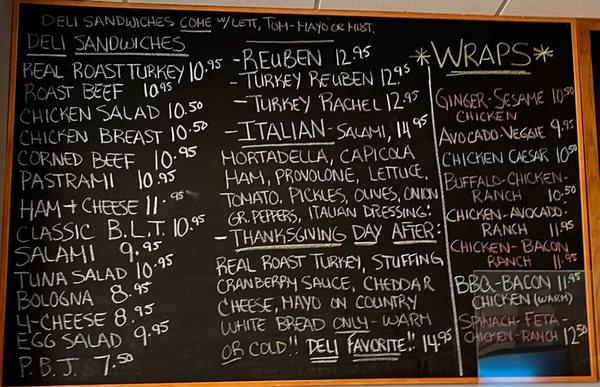 DELI SANDWICHES COME W/LETT, TOM-MAYO OR MUST.
DELI SANDWICHES
REAL ROAST TURKEY 10.95
ROAST BEEF 10.95
CHICKEN SALAD 10.50
CHICKEN BREAST 10.50
CORNED BEEF 10.95
PASTRAMI 10.95
HAM + CHEESE 11.95
CLASSIC B.L.T. 10.95
SALAMI 9.95
TUNA SALAD 10.95
BOLOGNA 8.95
4-CHEESE 8.95
EGG SALAD 9.95
P.B.J. 7.50
-REUBEN 12.95
-TURKEY REUBEN 12.95
-TURKEY RACHEL 12.95
-ITALIAN-SALAMI, 14.95
MORTADELLA, CAPICOLA
HAM, PROVOLONE, LETTUCE.
TOMATO, PICKLES, OLIVES, ONION
GR. PEPPERS, ITALIAN DRESSING!
-THANKSGIVING DAY AFTER:
REAL ROAST TURKEY, STUFFING
CRANBERRY SAUCE, CHEDDAR
CHEESE, MAYO ON COUNTRY
WHITE BREAD ONLY-WARM
OR COLD!! DELI FAVORITE!! 14.95
*WRAPS*
GINGER-SESAME 10.50
CHICKEN
AVOCADO-VEGGIE 9.95
CHICKEN CAESAR 10.50
BUFFALO-CHICKEN-
RANCH 10.50
CHICKEN-AVOCADO-
RANCH 11.95
CHICKEN-BACON
RANCH 11.95
BBQ-BACON 11.95
CHICKEN (WARM)
SPINACH-FETA-
CHICKEN-RANCH 12.50